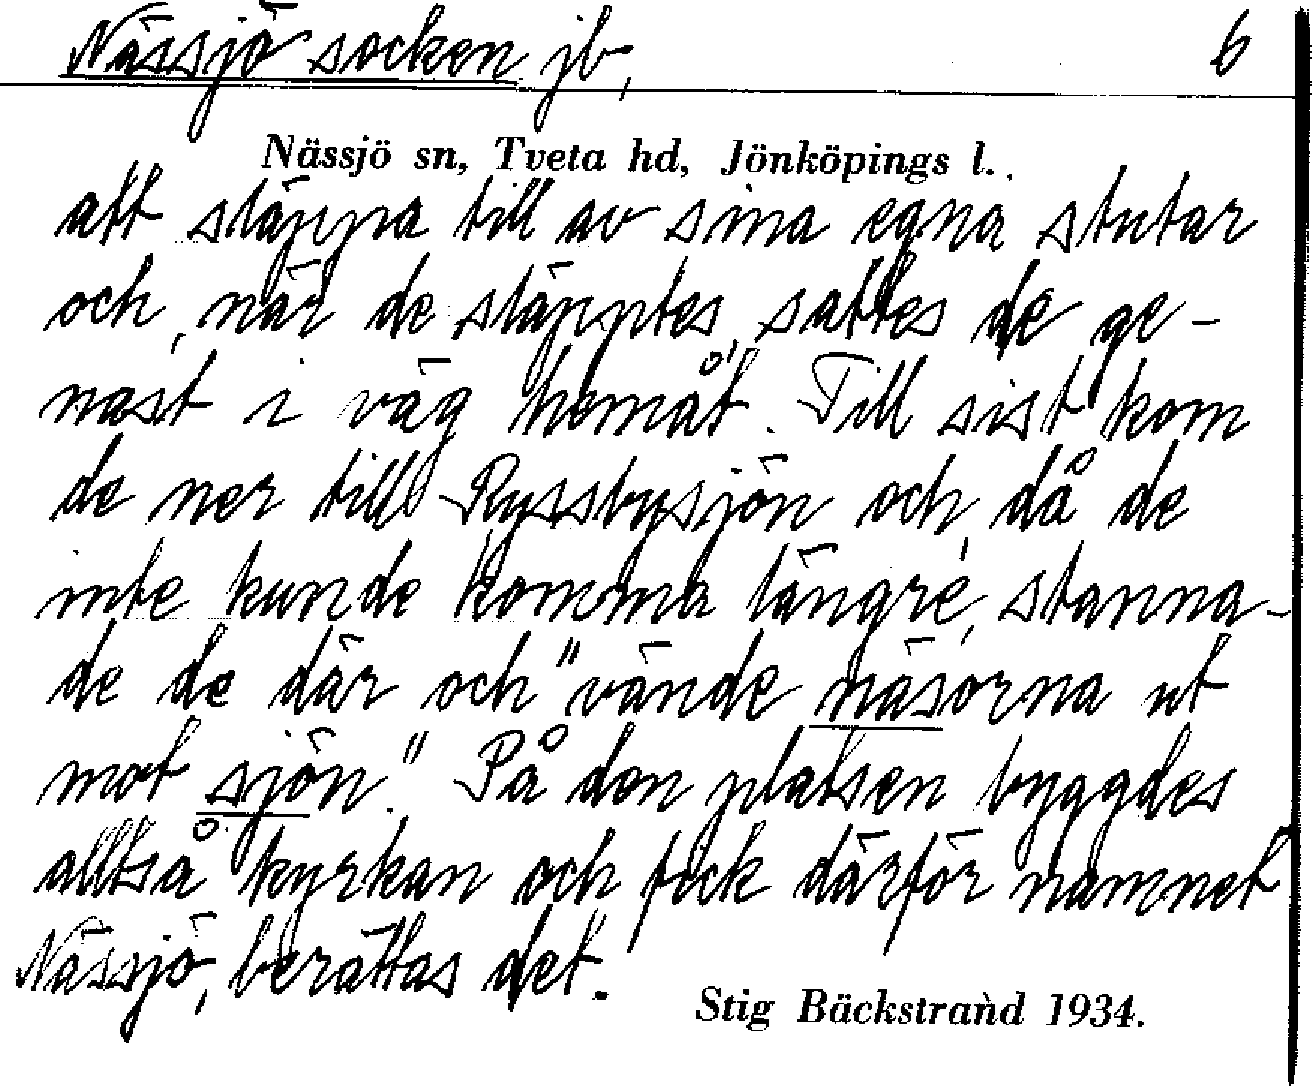 Nässjö socken jb, 6
Nässjö sn, Tveta hd, Jönköpings l.
att släppa till av sina egna stutar
och, när de släpptes, sattes de ge-
nast i väg hemåt. Till sist kom
de ner till Ryssbysjön och, då de
inte kunde komma längre, stanna-
de de där och "vände näsorna ut
mot sjön." På den platsen byggdes
alltså kyrkan och fick därför namnet
Nässjö, berättas det.
Stig Bäckstrand 1934.